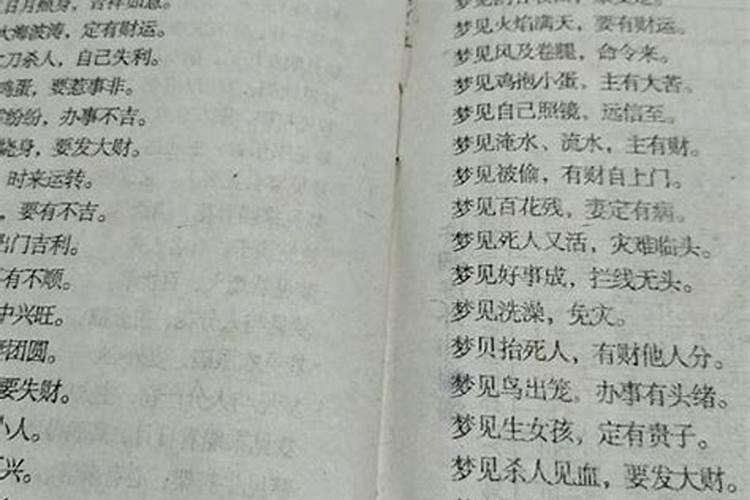 日月照身，吉祥如意。
大海波涛，定有财运。
刀杀人，自己失利。
鸡蛋，要惹事非。
纷纷，办事不吉。
烧身，要发大财。
时来运转。
，要有不吉。
出门吉利。
有不顺。
中兴旺。
团圆。
要失财。
小人。
兴。
梦见火焰满天，要有财运。
梦见风及卷腿，命令来。
梦见鸡抱小蛋，主有大苦。
梦见自己照镜，远信至。
梦见淹水、流水，主有财。
梦见被偷，有财自上门。
梦见百花残，妻定有病。
梦见死人又活，灾难临头。
梦见好事成，拦线无头。
梦见洗澡，免灾。
梦贝抬死人，有财他人分。
梦见鸟出笼，办事有头绪。
梦见生女孩，定有贵子。
梦见杀人见血，要发大财。